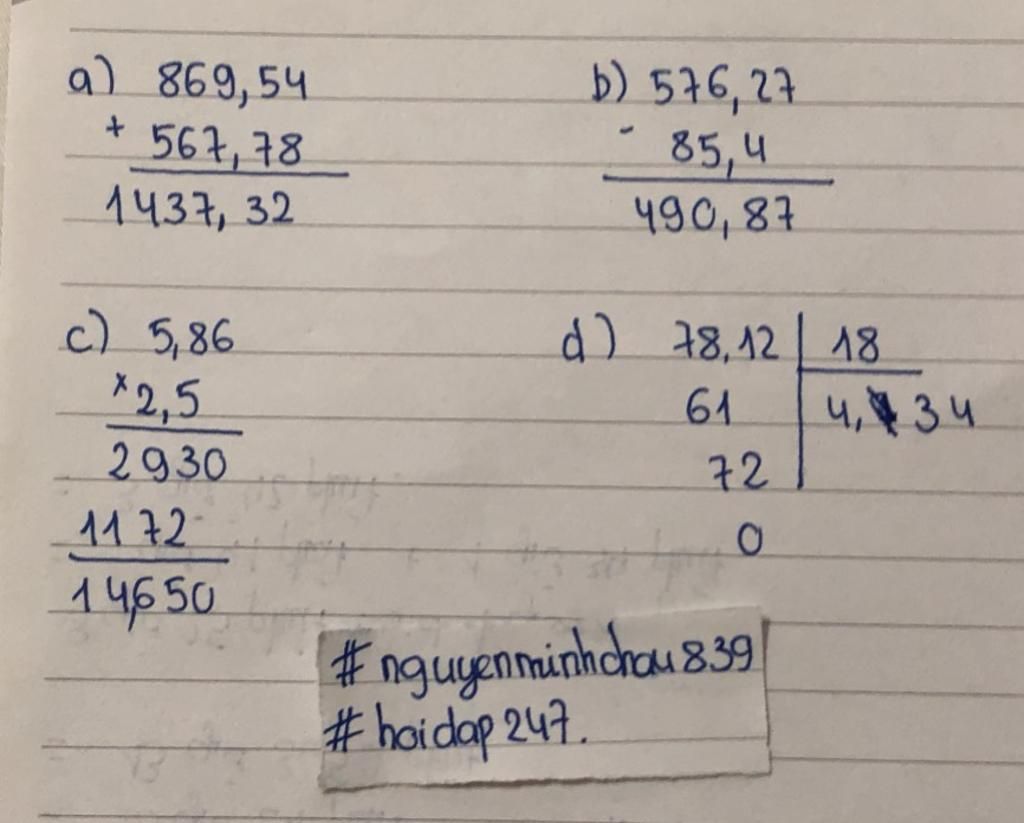 a) 869,54
+ 567,78
1437,32
b) 576,27
- 85,4
490,87
c) 5,86
x 2,5
2930
1172
14,650
d) 78,12 | 18
61 4,34
72
0
#nguyenminhchau839
#hoidap247.